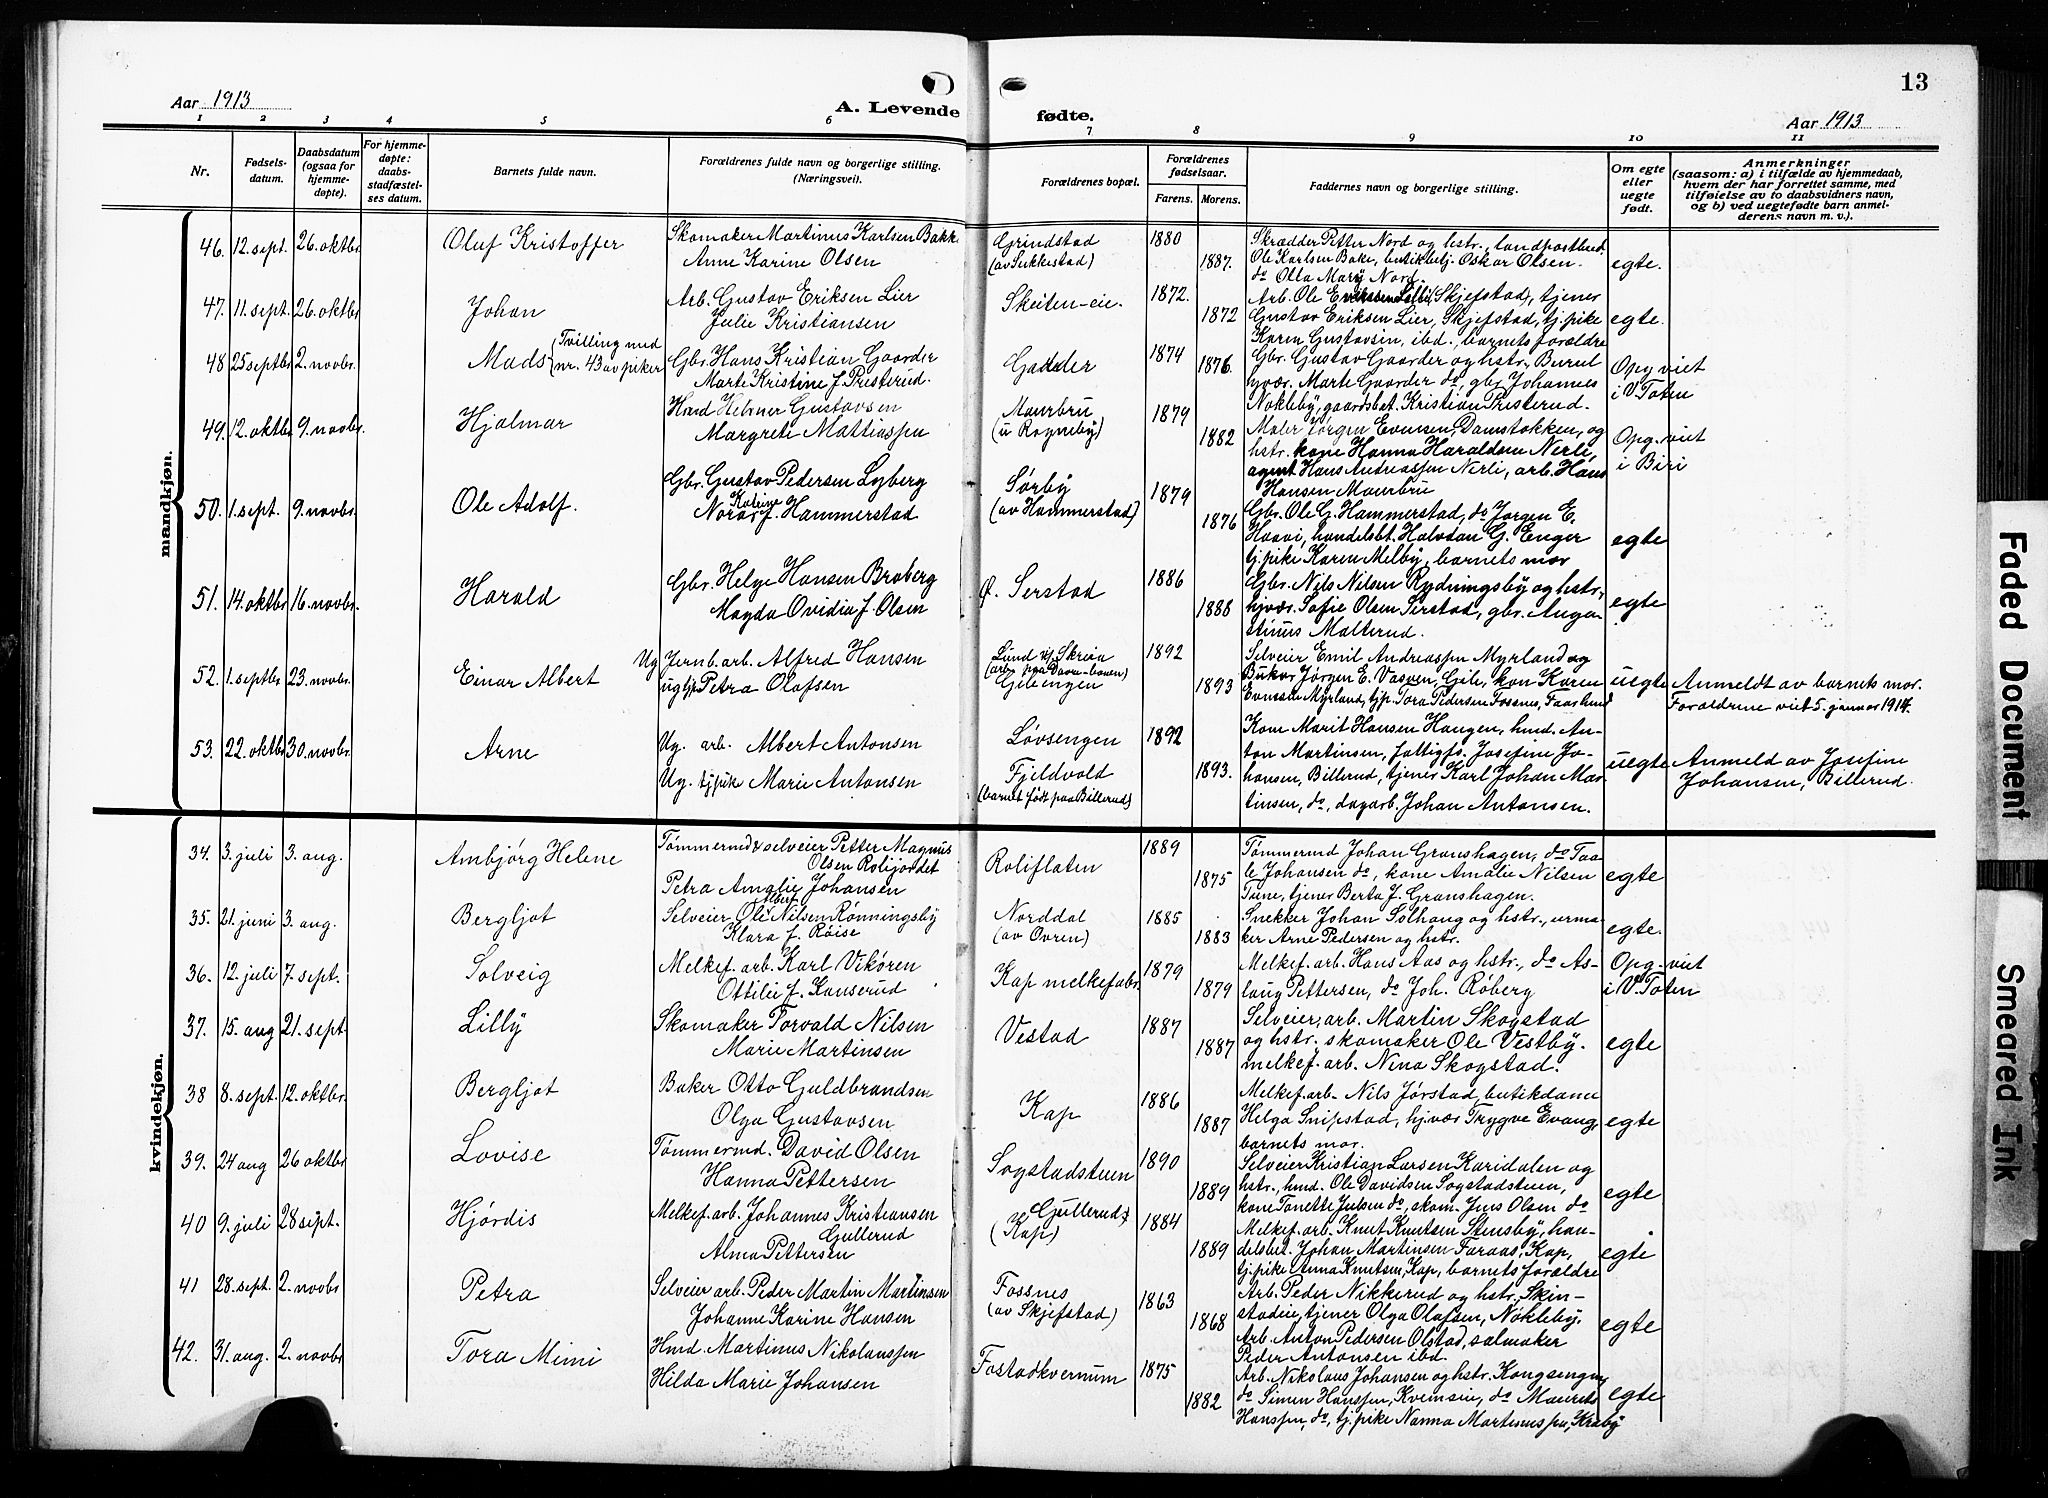 Aar 1913
A. Levende
fødte.
Aar 1913
13
1 2 3 4 5 6 7 8 9 10 11
Nr.
Fødsels-
datum.
Daabsdatum
(ogsaa for
hjemme-
døpte).
For hjemme-
døpte:
daabs-
stadfæstel-
ses datum.
Barnets fulde navn.
Forældrenes fulde navn og borgerlige stilling.
(Næringsvei).
Forældrenes bopæl.
Forældrenes
fødselsaar.
Farens. Morens.
Faddernes navn og borgerlige stilling.
Om egte
eller
uegte
født.
Anmerkninger
(saasom: a) i tilfælde av hjemmedaab,
hvem der har forrettet samme, med
tilføielse av to daabsvidners navn,
og b) ved uegtefødte barn anmel-
derens navn m. v.).
mandkjøn.
46. 12. sept. 26. oktbr. Oluf Kristoffer
Skomaker Martinus Karlsen Bakk
Anne Karine Olsen
Grindstad
(av Sukkestad)
1880
1887.
Skrædder Petter Nord og hstr., landpostbud
Ole Karlsen Bake, butikbetj. Oskar Olsen.
do Otta Mary Nord.
egte.
47. 11. sept. 26. oktbr. Johan
Arb. Gustav Eriksen Lier
Julie Kristiansen
Skeiten-eie.
1872.
1872
Arb. Ole (Skjefstad), tjener
Gustav Eriksen Lier, Skjefstad, tj. pike
Karen Gustavsen, ibd., barnets forældre
egte.
48 25 septbr 2. novbr. Mads (Tvilling med
nr. 43 av piker
Gbr. Hans Kristian Gaarder
Marte Kristine f. Presterud.
Gaarder
1874
1876.
Gbr. Gustav Gaarder og hstr., Burul
hjvær. Marte Gaarder do, gbr. Johannes
Nøkleby, gaardsbst. Kristian Presterud.
Opg viet
i V. Toten
49. 12. oktbr 9. novbr. Hjalmar
Hmd Helmer Gustavsen
Margrete Mattiaspen
Maurbru
(u Rogneby)
1879
1882
Maler Jørgen Evensen, Damstokken, og
hstr. kone Hanna Haraldsen Nerli,
agent Hans Andreaspen Nerli, arb. Hans
Hansen Maurbru
Opg. viet
i Biri
50. 1. sept. 9. novbr. Ole Adolf.
Gbr. Gustav Pedersen Lyberg
Nora Katrine f. Hammerstad
Sørby
(av Hammerstad)
1879
1876
Gbr. Ole G. Hammerstad, do Jørgen E.
Haavi, handelsbt. Halvdan G. Enger
tj. pike Karen Melby, barnets mor
egte
51. 14. oktbr 16. novbr. Harald
Gbr. Helge Hansen Broberg
Magda Ovidia f. Olsen
Ø. Serstad
1886
1886
Gbr. Nils Nilsen Rydningsby og hstr.,
hjvær. Sofie Olsen Serstad, gbr. Augu-
stinus Malterud.
egte
52. 1. septbr 23. novbr. Einar Albert
Ug Jernb. arb. Alfred Hansen
ug tjp Petra Olafsen
Lund v/ Skreia
(arb. paa Dovre-banen)
Gilengen
1892
1893
Selveier Emil Andreaspen Myrland og
Buksr Jørgen E. Vasven, Gile, kon Karen
Evensen Myrland, tjp. Tora Pedersen Fossnes, Faarlund
uegte
Anmeldt av barnets mor.
Forældrene viet 5. januar 1914.
53. 22. oktbr 30. novbr. Arne
Ug. arb. Albert Antonsen
Ug. tj pike Marie Antonsen
Løvsengen
Fjeldvold
(barnet født paa Billerud)
1892
1893.
Kone Marit Hansen Haugen, hmd. An-
ton Martinsen, fattigfs. Josefine Jo-
hansen, Billerud, tjener Karl Johan Mar-
tinsen, do, dagarb. Johan Antonsen.
uegte
Anmeld av Josefine
Johansen, Billerud.
kvindekjøn.
34. 3. juli 3. aug. Ambjørg Helene
Tømmermd & selveier Petter Magnus
Olsen Rolijordet
Petra Amalie Johansen
Roliflaten
1889
1875
Tømmermd Johan Granshagen, do Taa-
le Johansen do, kone Amalie Nilsen
Tune, tjener Berta J. Granshagen.
egte
35. 21. juni 3. aug. Bergljot
Selveier Ole Albert Nilsen Rønningsby
Klara f. Røise
Norddal
(av Ovren)
1885
1883
Snekker Johan Solhaug og hstr., urma-
ker Arne Pedersen og hstr.
egte.
36. 12. juli 7. sept. Solveig
Melkef. arb. Karl Vikøren
Ottilie f. Kanserud
Kap melkefabr.
1879
1879
Melkef. arb. Hans Aas og hstr., do As-
laug Pettersen, do Joh. Røberg
Opg. viet
i V. Toten
37. 15. aug 21. sept. Lilly
Skomaker Torvald Nilsen
Marie Martinsen
Vestad
1887
1887
Selveier, arb. Martin Skogstad
og hstr. skomaker Ole Vestby.
melkef. arb. Nina Skogstad.
egte
38 8. sept. 12. oktbr. Bergljot
Baker Otto Guldbrandsen
Olga Gustavsen
Kap
1886
1887
Melkef. arb. Nils Jørstad, butikdame
Helga Snipstad, hjvær Trygve Evang,
barnets mor.
egte
39. 24 aug 26 oktbr Lovise
Tømmermd. David Olsen
Hanna Pettersen
Sogstadstuen
1890
1889
Selveier Kristian Larsen Karidalen og
hstr., hmd. Ole Davidsen Sogstadstuen,
kone Tonette Julsen do, skom. Jens Olsen do
egte
40 9. juli 28 sept. Hjørdis
Melkef. arb. Johannes Kristiansen
Gullerud
Alma Pettersen
Gullerud
(Kap)
1884
1889
Melkef. arb. Knut Knutsen Stensby, han-
delsbet. Johan Martinsen Faraas, Kap,
tj. pike Anna Knutsen, Kap, barnets forældre
egte
41 28. sept. 2. novbr Petra
Selveier arb. Peder Martin Martinsen
Johanne Karine Hansen
Fossnes
(av Skjefstad)
1863
1868
Arb. Peder Nikkerud og hstr. Skin-
stadeie, tjener Olga Olafsen, Nøkleby.
Arb. Anton Pedersen Olstad, salmaker
Peder Antonsen ibd.
egte
42. 31. aug. 2. novbr Tora Mimi
Hmd. Martinus Nikolauspen
Hilda Marie Johansen
Fostadkvernum
1875
1882
Arb. Nikolaus Johansen og hstr. Kongsengen,
do Simen Hanspen, Kvemseie, do Maurits
Hanspen, do, tj. pike Nanna Martinuspen, Kraby
egte
Faded Document
Smeared Ink